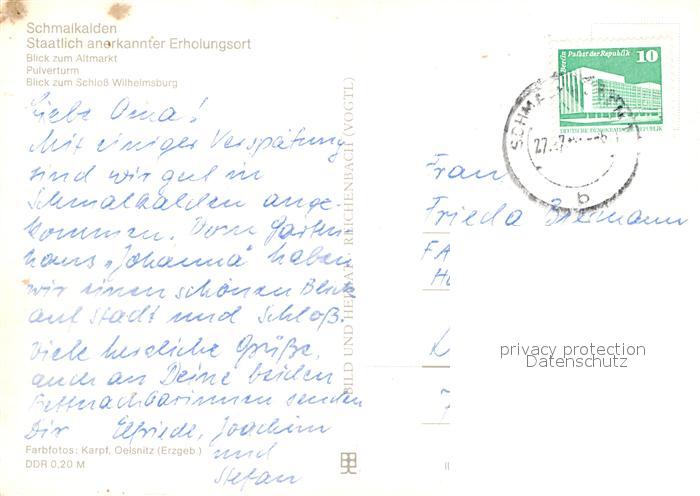 Schmalkalden
Staatlich anerkannter Erholungsort
Blick zum Altmarkt
Pulverturm
Blick zum Schloß Wilhelmsburg
Liebe Oma!
Mit einiger Verspätung
sind wir gut in
Schmalkalden ange-
kommen. Vom Garten
haus „Johanna“ haben
wir einen schönen Blick
auf Stadt und Schloß.
Viele herzliche Grüße,
auch an Deine beiden
Bettnachbarinnen senden
Dir Elfriede, Joachim
und
Stefan
Farbfotos: Karpf, Oelsnitz (Erzgeb.)
DDR 0,20 M
BILD UND HEIMAT REICHENBACH (VOGTL)
Berlin Palast der Republik 10
DEUTSCHE DEMOKRATISCHE REPUBLIK
b
Frau
Frieda
privacy protection
Datenschutz